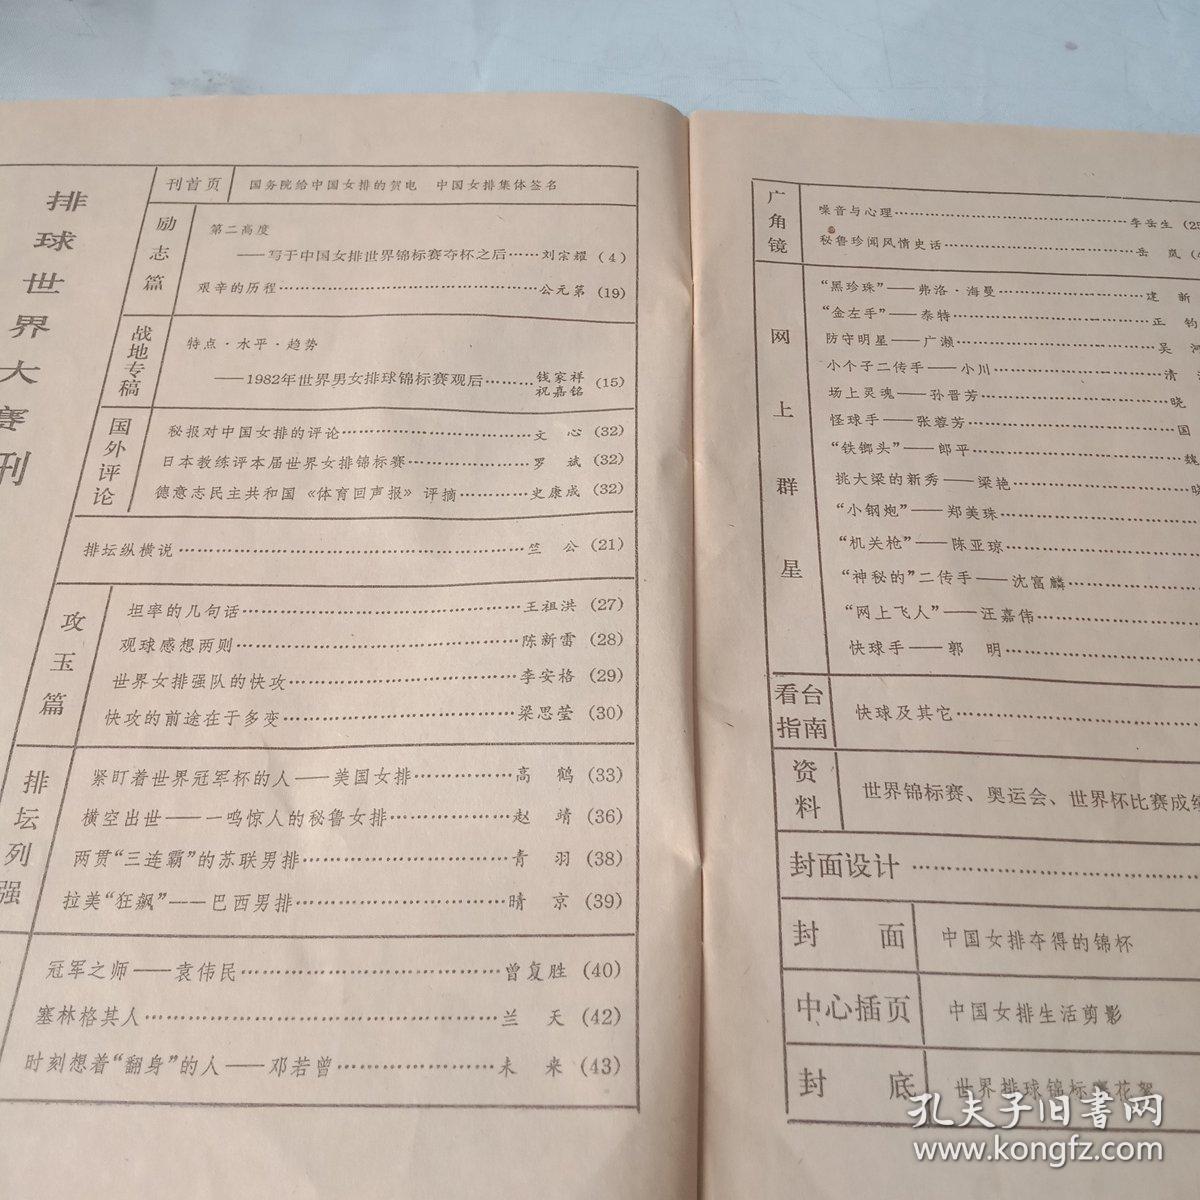 排球世界大赛刊
刊首页 国务院给中国女排的贺电 中国女排集体签名
励志篇
第二高度
——写于中国女排世界锦标赛夺杯之后……刘宗耀 (4)
艰辛的历程……公元第 (19)
战地专稿
特点·水平·趋势
——1982年世界男女排球锦标赛观后……钱家祥 祝嘉铭 (15)
国外评论
秘报对中国女排的评论……文 心 (32)
日本教练评本届世界女排锦标赛……罗 斌 (32)
德意志民主共和国《体育回声报》评摘……史康成 (32)
排坛纵横说……竺 公 (21)
攻玉篇
坦率的几句话……王祖洪 (27)
观球感想两则……陈新雷 (28)
世界女排强队的快攻……李安格 (29)
快攻的前途在于多变……梁思莹 (30)
排坛列强
紧盯着世界冠军杯的人——美国女排……高 鹤 (33)
横空出世——一鸣惊人的秘鲁女排……赵 靖 (36)
两贯“三连霸”的苏联男排……青 羽 (38)
拉美“狂飙”——巴西男排……晴 京 (39)
冠军之师——袁伟民……曾复胜 (40)
塞林格其人……兰 天 (42)
时刻想着“翻身”的人——邓若曾……未 来 (43)
广角镜
噪音与心理……李岳生 (25
秘鲁珍闻风情史话……岳 岚 (4
网上群星
“黑珍珠”——弗洛·海曼……建 新
“金左手”——泰特……正 钧
防守明星——广濑……吴 河
小个子二传手——小川……清
场上灵魂——孙晋芳……晓
怪球手——张蓉芳……国
“铁榔头”——郎平……魏
挑大梁的新秀——梁艳……晓
“小钢炮”——郑美珠……
“机关枪”——陈亚琼……
“神秘的”二传手——沈富麟……
“网上飞人”——汪嘉伟……
快球手——郭 明……
看台指南
快球及其它……
资料
世界锦标赛、奥运会、世界杯比赛成绩
封面设计……
封 面 中国女排夺得的锦杯
中心插页 中国女排生活剪影
封 底 世界排球锦标赛花絮
孔夫子旧书网
www.kongfz.com